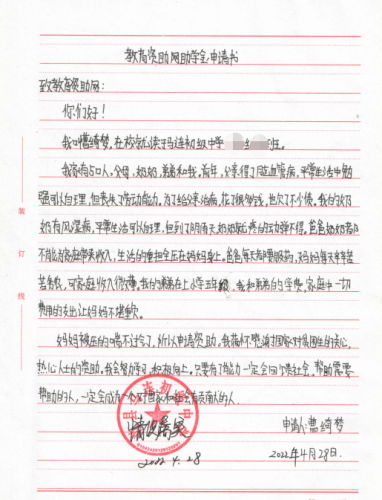 教育资助网助学金申请书
致教育资助网：
你们好！
我叫曹绮梦，在校就读于玛连初级中学 班。
我家有五口人，父母，奶奶，弟弟和我，前年，父亲得了脑血管病，平常生活中勉
强可以自理，但丧失了劳动能力，为了给父亲治病，花了很多钱，也欠了不少债。我的奶
奶有风湿病，平常生活可以自理，但到了阴雨天奶奶就疼的动弹不得。爸爸奶奶都
不能为家庭带来收入，生活的重担全压在妈妈身上。爸爸每天都需服药，妈妈每天辛辛苦
苦务农，可家庭收入很微薄，我的弟弟在上小学五年级，我和弟弟的学费，家庭中一切
费用的支出让妈妈不堪重负。
妈妈被压的喘不过气了，所以申请资助，我 国家对贫困生的关心，
热心人士的资助。我会努力学习，积极向上。只要有了能力一定会回报社会，帮助需要
帮助的人，一定会成为一个对国家和社会有贡献的人。
情况属实
2022.4.28
申请人：曹绮梦
2022年4月28日.
装
订
线